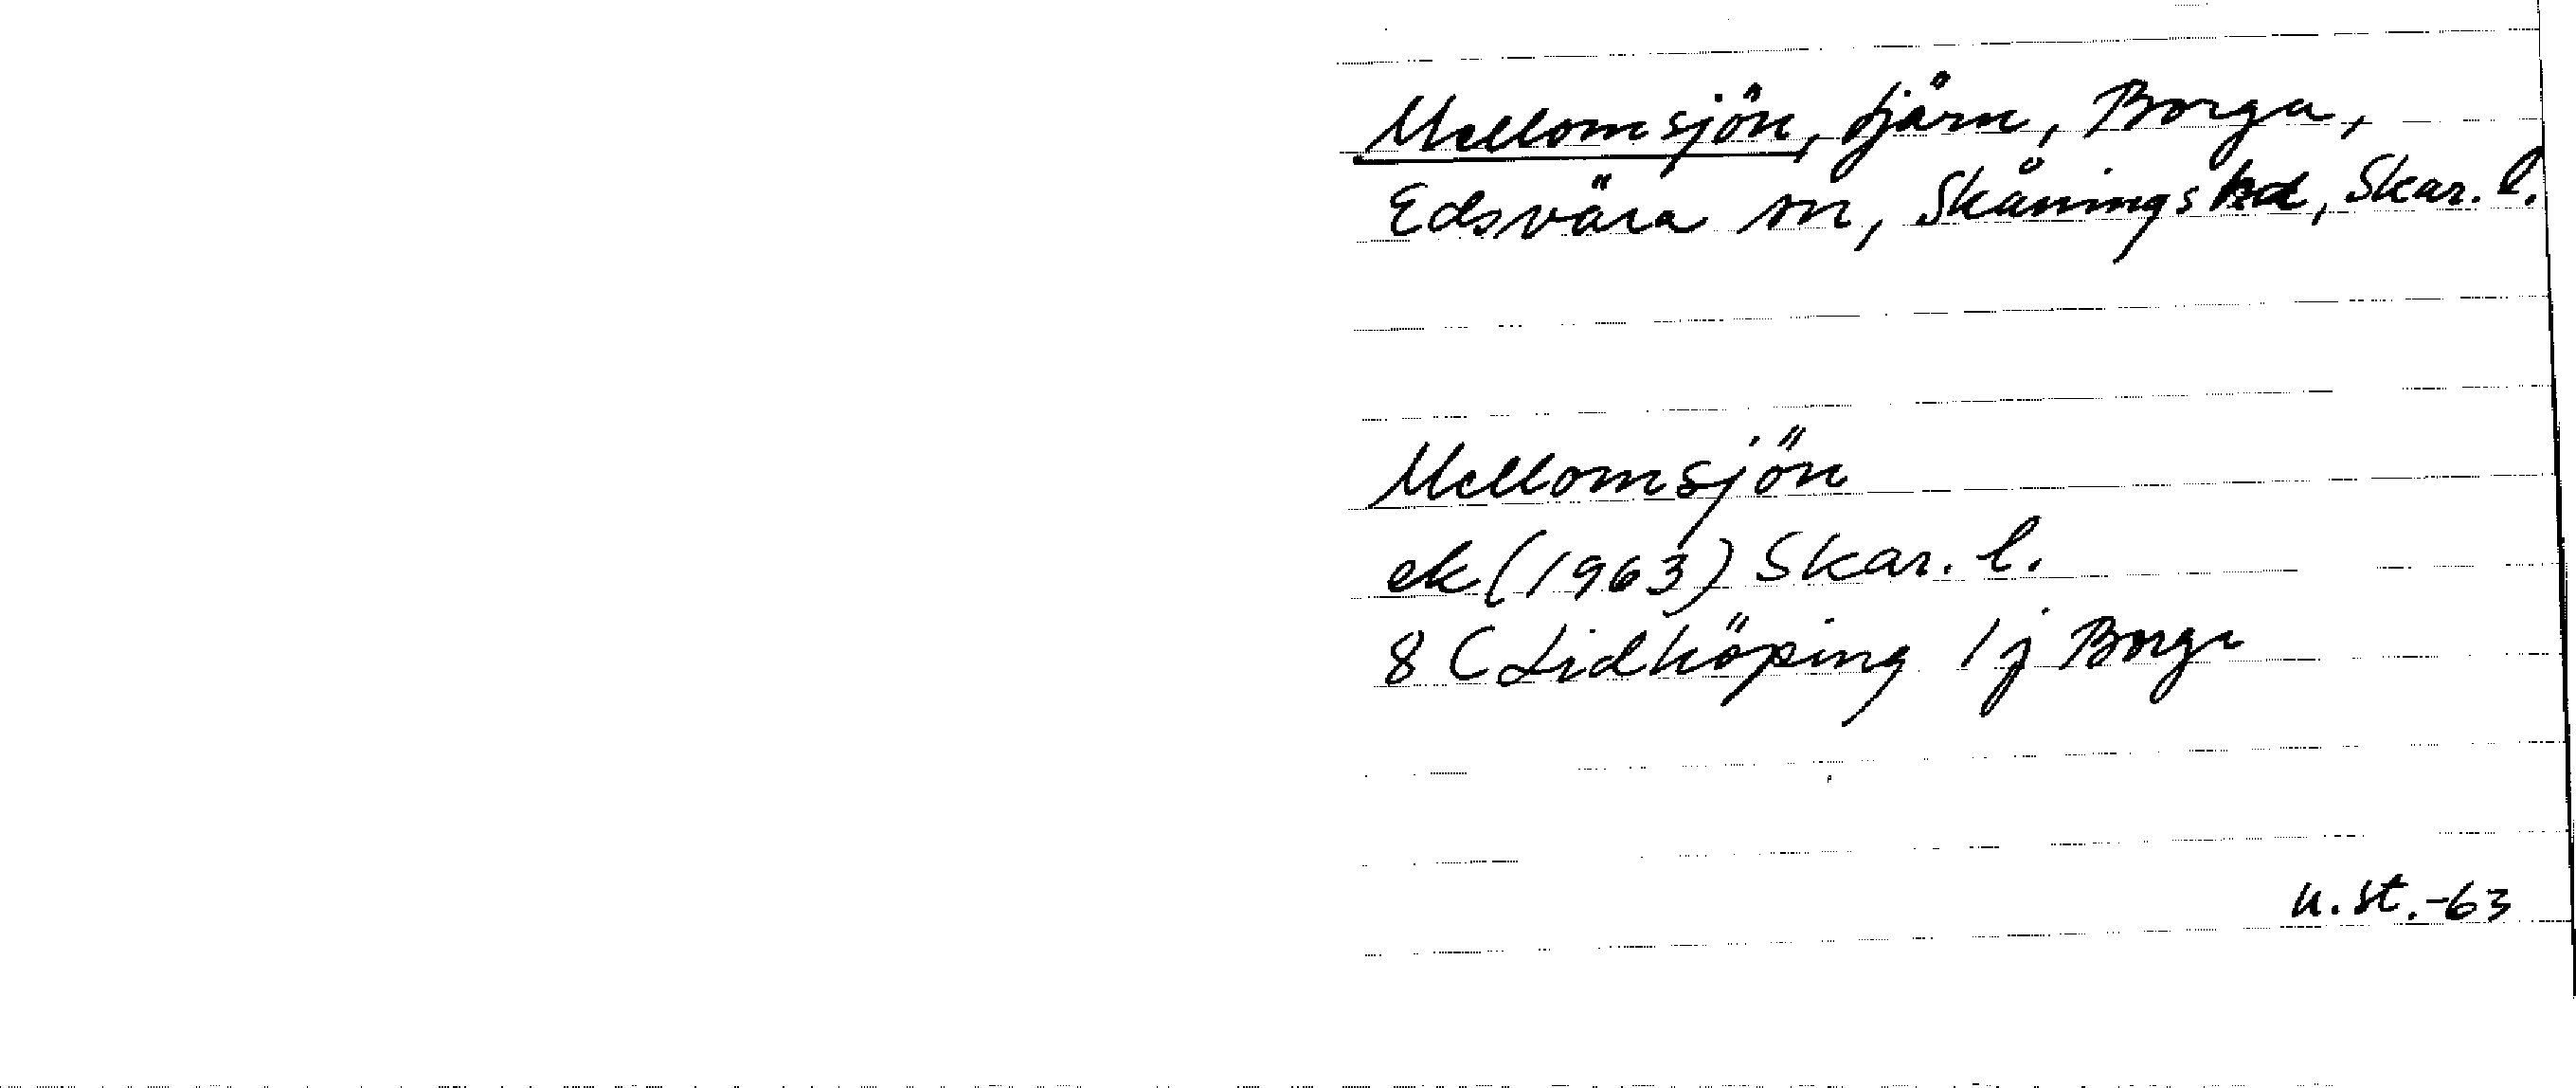 Mellomsjön, tjärn, Borga,
Edsvära sn, Skånings hd, Skar. l.
Mellomsjön
ek (1963) Skar. l.
8 C Lidköping 1j Borga
u.st.-63